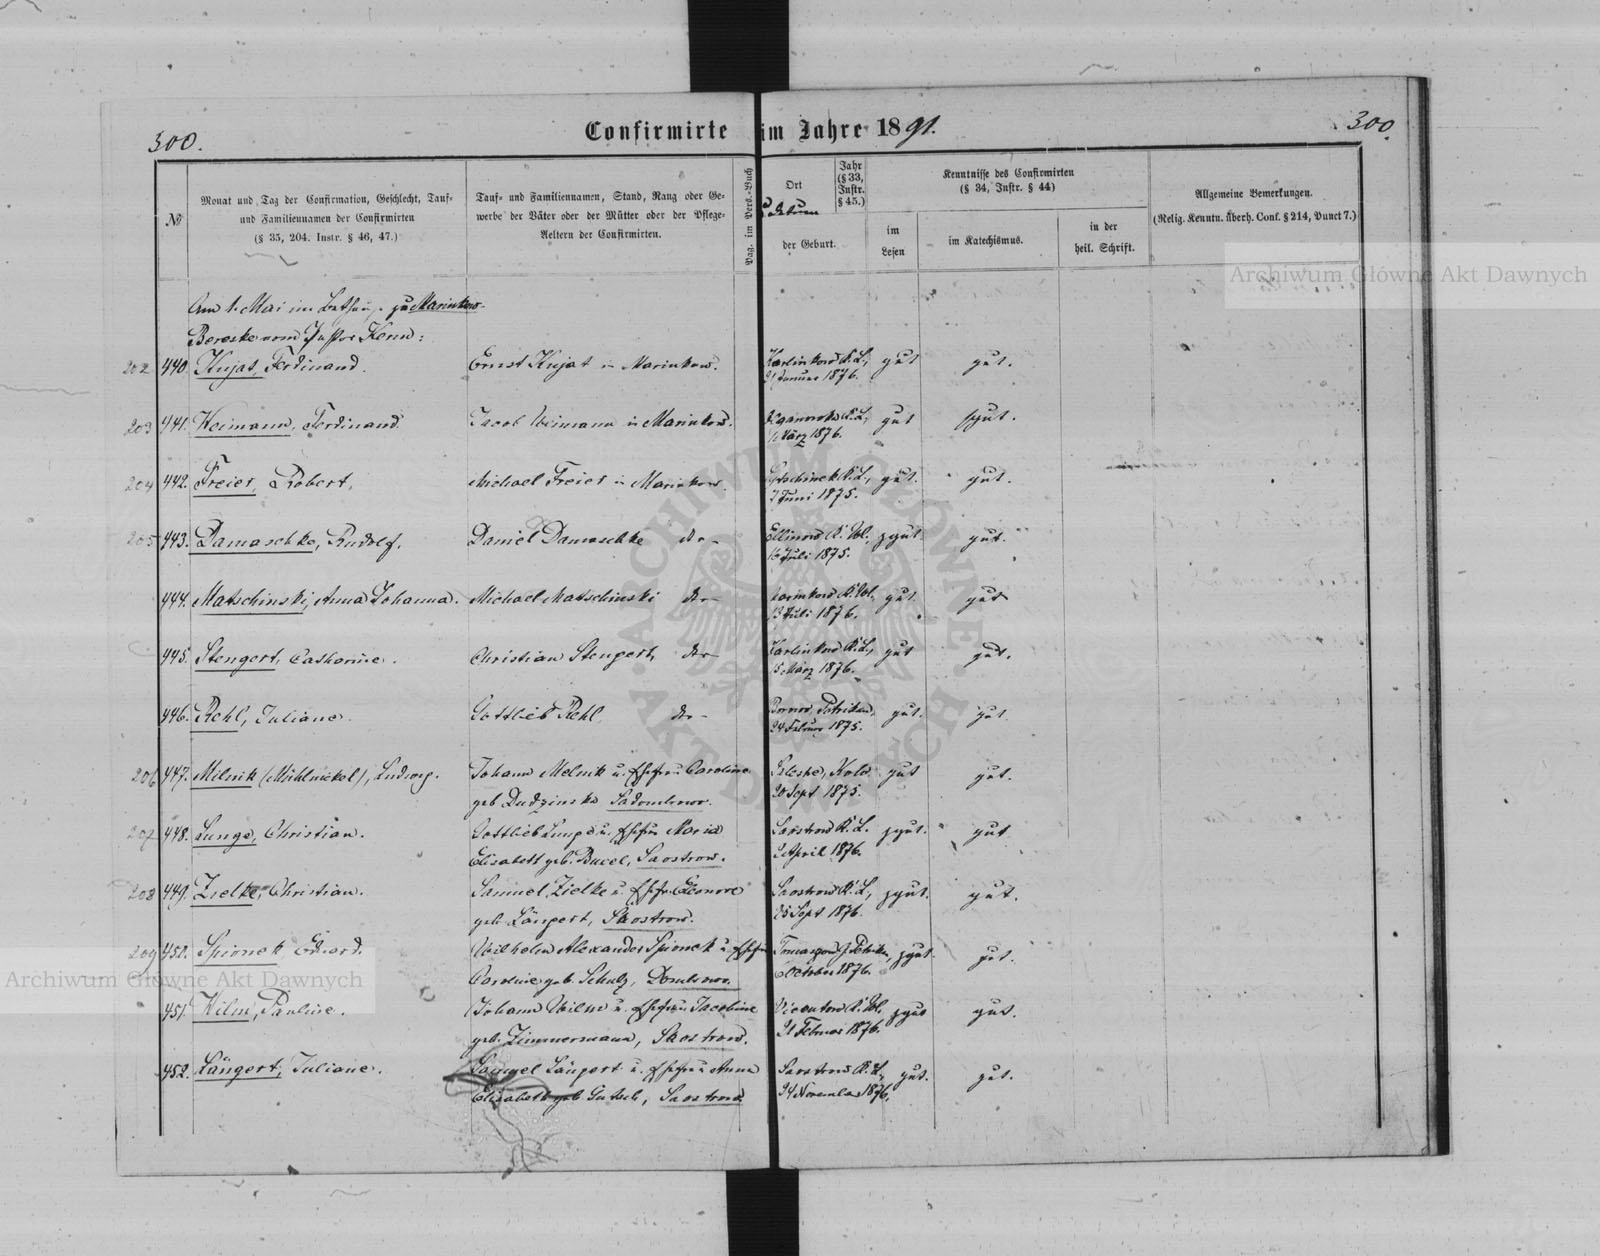 300.
Confirmirte im Jahre 1891.
300.
№
Monat und Tag der Confirmation, Geschlecht, Tauf-
und Familiennamen der Confirmirten
(§ 35, 204. Instr. § 46, 47.)
Tauf- und Familiennamen, Stand, Rang oder Ge-
werbe der Väter oder der Mütter oder der Pflege-
Aeltern der Confirmirten.
Pag. im Pers.-Buch
Ort
Jahr
(§ 33,
Instr.
§ 45.)
der Geburt.
Kenntnisse des Confirmirten
(§ 34, Instr. § 44)
im
Lesen
im Katechismus.
in der
heil. Schrift.
Allgemeine Bemerkungen.
(Relig. Kenntn. überh. Conf. § 214, Punct 7.)
Am 1. Mai im zu Marinkow-
Bereske vom Pastor
202 440. Kujat, Ferdinand. Ernst Kujat in Marinkow. gut gut.
21 Januar 1876.
203 441. Weimann, Ferdinand Jacob Weimann in Marinkow. gut gut.
März 1876.
204 442. Freier, Robert, Michael Freier in Marinkow gut. gut.
7 Juni 1875.
205 443. Damaschke, Rudolf. Daniel Damaschke dto- Ellinow K. Wl. gut gut.
16 Juli 1875.
444. Matschinski, Anna Johanna. Michael Matschinski dto- gut gut
13 Juli 1876.
445. Stengert, Catharine. Christian Stengert, dto- gut gut.
5 März 1876.
446. Rehl, Juliane. Gottlieb Rehl dto- gut. gut
24 Februar 1875.
206 447. Milnik (Mühlnickel), Ludwig. Johann Melnik u. Ehefrau Caroline gut gut.
geb. Dudzinska Sadombrow. 20 Sept 1875.
207 448. Lunge, Christian. Gottlieb Lunge u. Ehefrau Maria Saostrow K. L. gut. gut
Elisabeth geb. Saostrow. 2 April 1876.
208 449. Zielke, Christian. Samuel Zielke u. Ehefr. Eleonore Saostrow K. L., gut. gut.
geb. Längert, Saostrow. 25 Sept 1876.
209 452. Spionek, Eduard. Wilhelm Alexander Spionek u. Ehefrau gut. gut.
Caroline geb. Schulz, Dombrowo. October 1876.
451. Wilm, Pauline. Johann Wilm u. Ehefrau Jacobine gut gut.
geb. Zimmermann, Saostrow. 21 Februar 1876.
452. Längert, Juliane. Samuel Längert u. Ehefrau Anna gut. gut.
Elisabeth geb. Saostrow 24 November 1876.
Archiwum Główne Akt Dawnych
Archiwum Główne Akt Dawnych
ARCHIWUM GŁÓWNE
AKT DAWNYCH